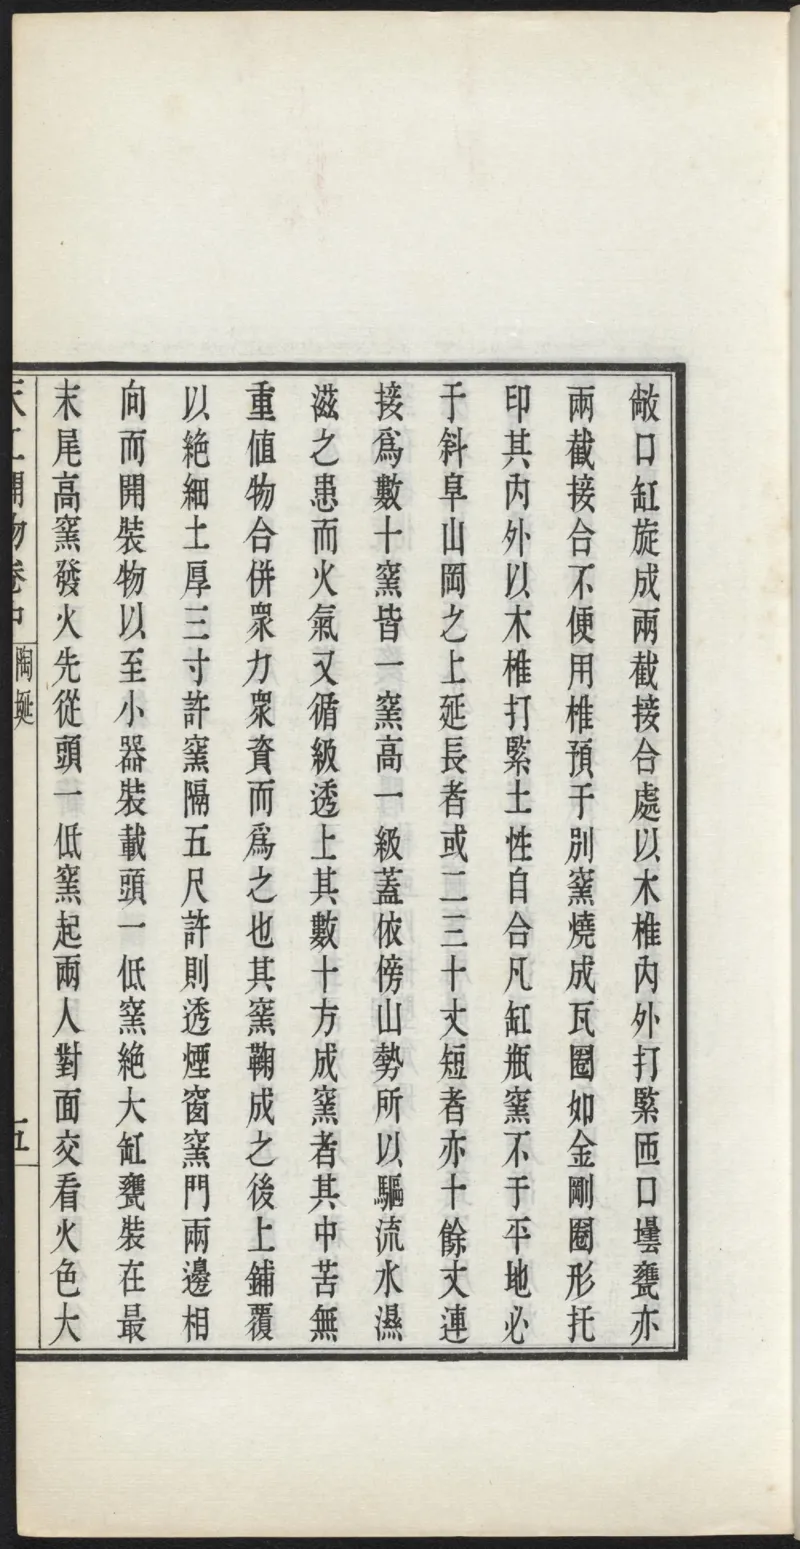 敞口缸旋成兩截接合處以木椎內外打緊匝口壜甕亦
兩截接合不便用椎預于別窯燒成瓦圈如金剛圈形托
印其內外以木椎打緊土性自合凡缸瓶窯不于平地必
于斜阜山岡之上延長者或二三十丈短者亦十餘丈連
接爲數十窯皆一窯高一級蓋依傍山勢所以驅流水濕
滋之患而火氣又循級透上其數十方成窯者其中苦無
重値物合併衆力衆資而爲之也其窯鞠成之後上鋪覆
以絶細土厚三寸許窯隔五尺許則透煙窗窯門兩邊相
向而開裝物以至小器裝載頭一低窯絶大缸甕裝在最
末尾高窯發火先從頭一低窯起兩人對面交看火色大
天工開物卷中 陶埏 五